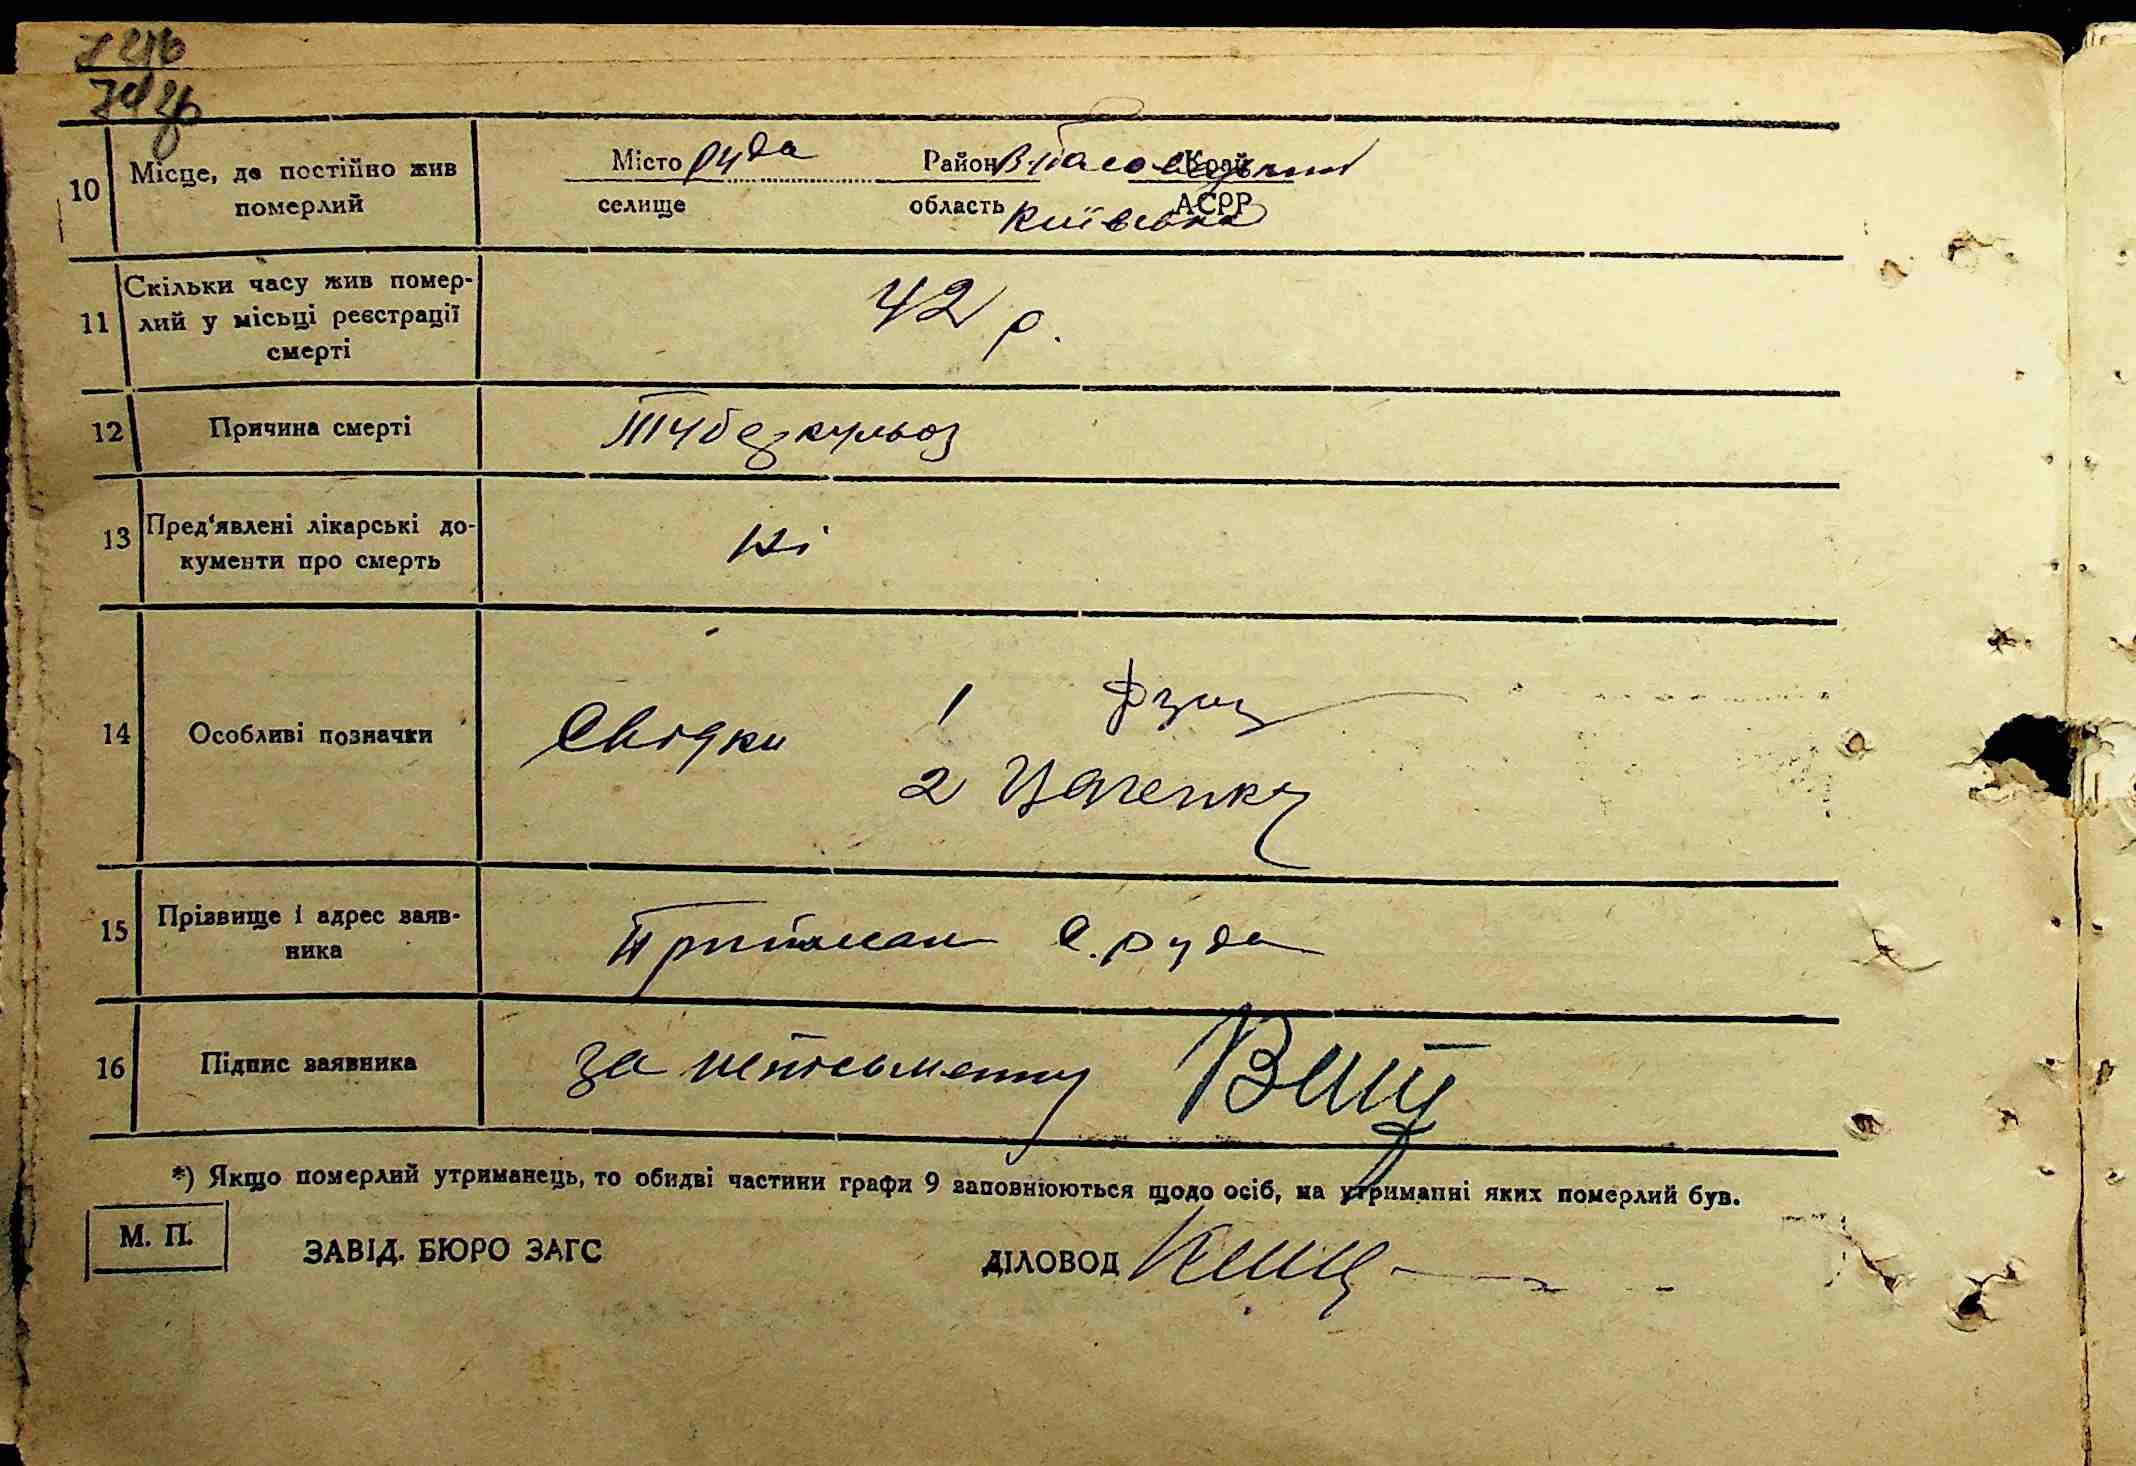 10 Місце, де постійно жив померлий
Місто Руда Район Край
селище область Київська АСРР
11 Скільки часу жив помер-
лий у місьці реєстрації
смерті
42 р.
12 Причина смерті Туберкульоз
13 Пред'явлені лікарські до-
кументи про смерть
Ні
14 Особливі позначки Свідки 1
2
15 Прізвище і адрес заяв-
ника
с. Руда
16 Підпис заявника за неписьменну
*) Якщо померлий утриманець, то обидві частини графи 9 заповнюються щодо осіб, на утриманні яких померлий був.
М. П.
ЗАВІД. БЮРО ЗАГС ДІЛОВОД